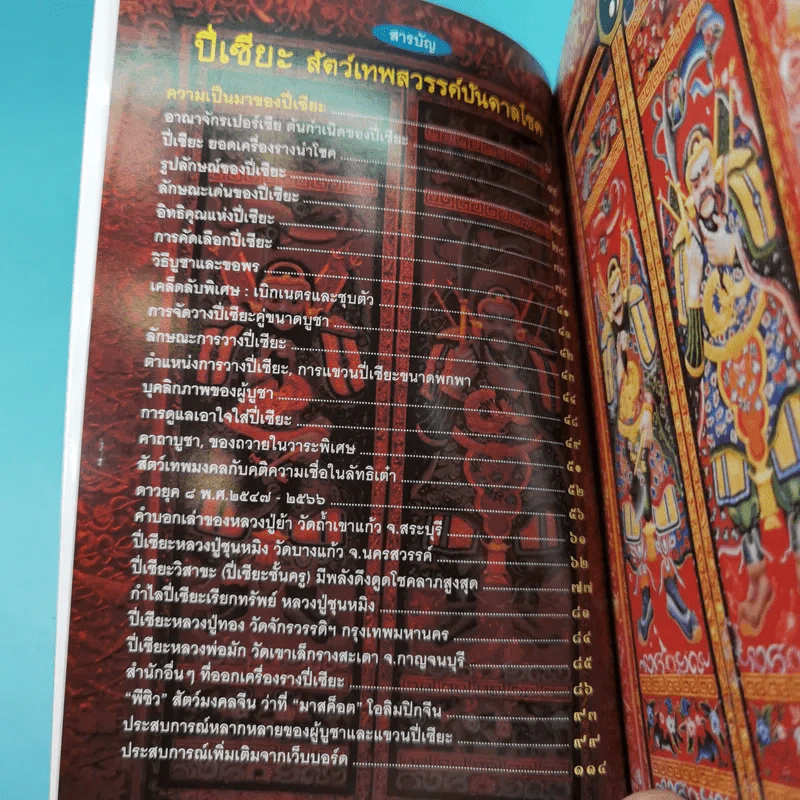 สารบัญ
ปี่เซียะ สัตว์เทพสวรรค์บันดาลโชค
ความเป็นมาของปี่เซียะ
อาณาจักรเปอร์เซีย ต้นกำเนิดของปี่เซียะ
ปี่เซียะ ยอดเครื่องรางนำโชค
รูปลักษณ์ของปี่เซียะ
ลักษณะเด่นของปี่เซียะ
อิทธิคุณแห่งปี่เซียะ
การคัดเลือกปี่เซียะ
วิธีบูชาและขอพร
เคล็ดลับพิเศษ : เบิกเนตรและชุบตัว
การจัดวางปี่เซียะคู่ขนาดบูชา
ลักษณะการวางปี่เซียะ
ตำแหน่งการวางปี่เซียะ, การแขวนปี่เซียะขนาดพกพา
บุคลิกภาพของผู้บูชา ๕๔
การดูแลเอาใจใส่ปี่เซียะ ๔๘
คาถาบูชา, ของถวายในวาระพิเศษ ๔๙
สัตว์เทพมงคลกับคติความเชื่อในลัทธิเต๋า ๕๑
ดาวยุค ๘ พ.ศ.๒๕๔๗ - ๒๕๖๖ ๕๒
คำบอกเล่าของหลวงปู่ย้า วัดถ้ำเขาแก้ว จ.สระบุรี ๕๖
ปี่เซียะหลวงปู่ชุนหมิง วัดบางแก้ว จ.นครสวรรค์ ๖๑
ปี่เซียะวิสาขะ (ปี่เซียะชั้นครู) มีพลังดึงดูดโชคลาภสูงสุด ๖๒
กำไลปี่เซียะเรียกทรัพย์ หลวงปู่ชุนหมิง ๗๗
ปี่เซียะหลวงปู่ทอง วัดจักรวรรดิฯ กรุงเทพมหานคร ๘๑
ปี่เซียะหลวงพ่อมัก วัดเขาเล็กรางสะเดา จ.กาญจนบุรี ๘๔
สำนักอื่นๆ ที่ออกเครื่องรางปี่เซียะ ๘๕
"พีซิว" สัตว์มงคลจีน ว่าที่ "มาสค็อต" โอลิมปิกจีน ๘๖
ประสบการณ์หลากหลายของผู้บูชาและแขวนปี่เซียะ ๙๓
ประสบการณ์เพิ่มเติมจากเว็บบอร์ด ๙๙
๑๑๔